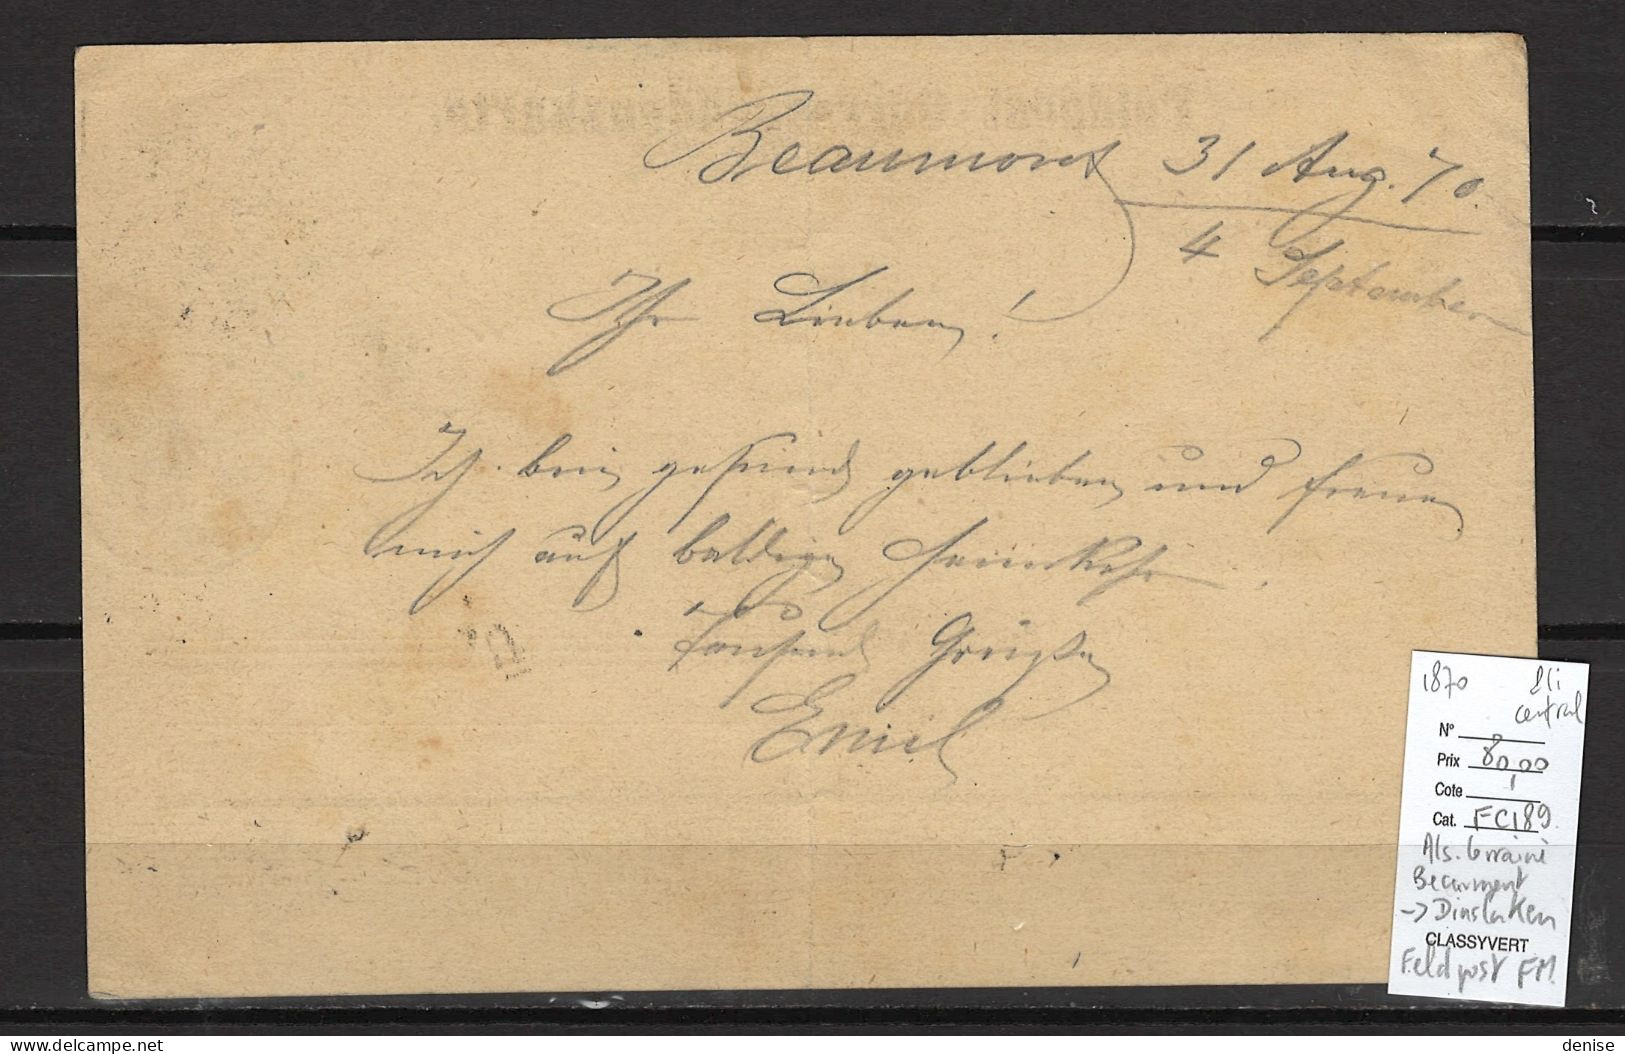 Beaumont 31 Aug. 70.
4 September
Ihr Lieben!
Ich bin gesund geblieben und freue
mich auf baldige Heimkehr.
Tausend Grüße
Emil
1870 Pli
central
N°
Prix 80,00
Cote
Cat. FC189
Als. Lorraine
Beaumont
-> Dinslaken
CLASSYVERT
Feldpost FM.
delcampe.net
denise